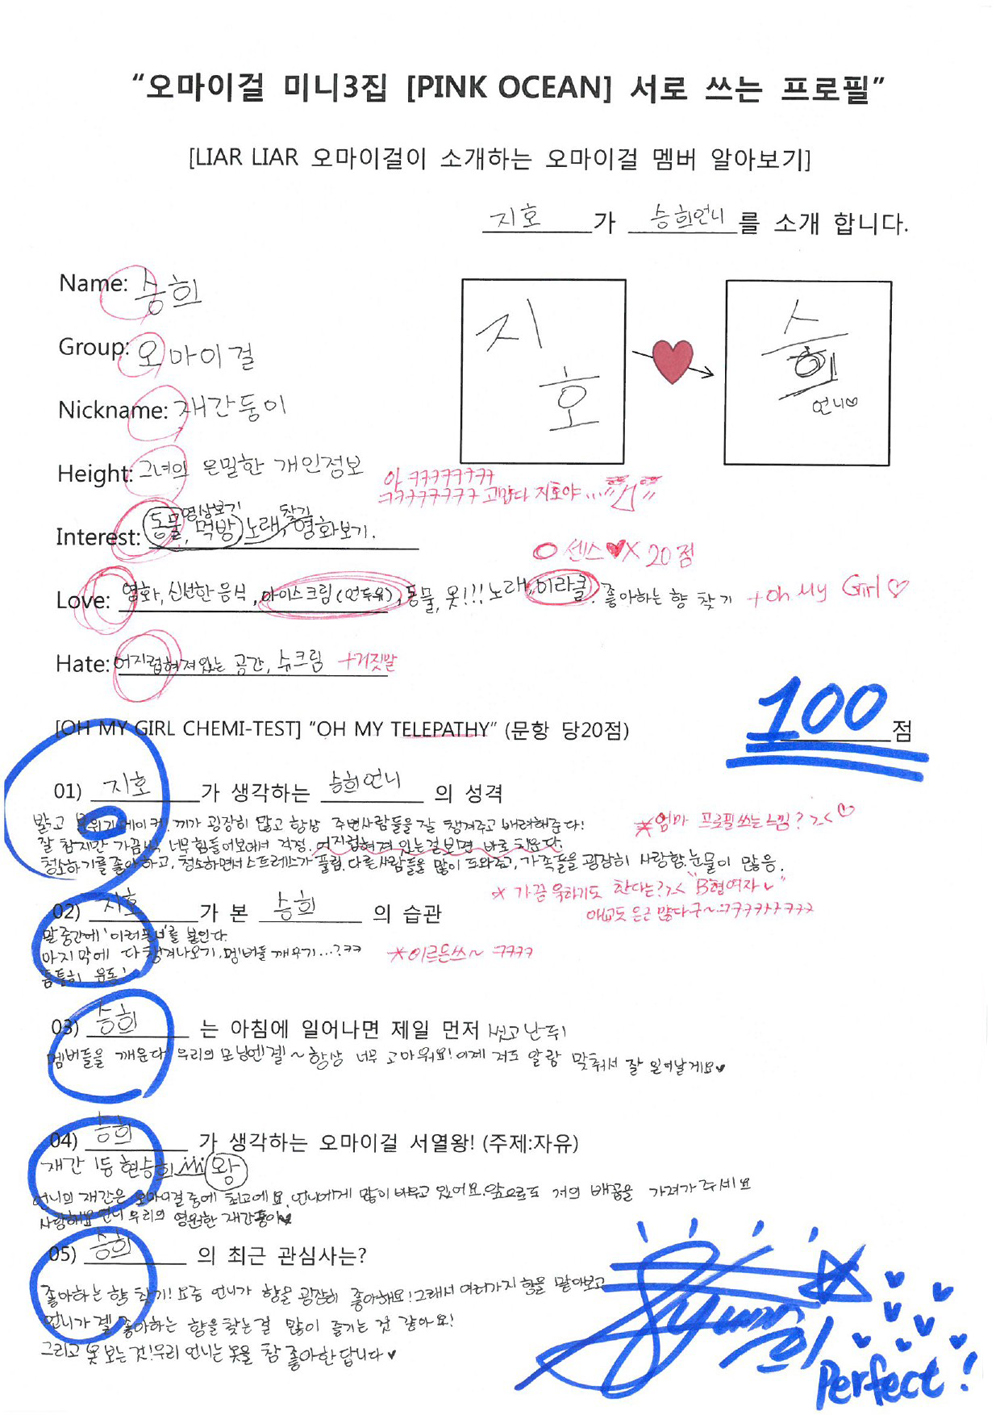 “오마이걸 미니3집 [PINK OCEAN] 서로 쓰는 프로필”
[LIAR LIAR 오마이걸이 소개하는 오마이걸 멤버 알아보기]
지호 가 승희언니 를 소개 합니다.
Name: 승희
지호
승희
언니♡
Group: 오마이걸
Nickname: 재간둥이
Height: 그녀의 은밀한 개인정보
아 ㅋㅋㅋㅋㅋㅋㅋㅋ
ㅋㅋㅋㅋㅋㅋㅋㅋ 고맙다 지호야...
Interest: 동물영상보기, 먹방, 노래찾기, 영화보기.
○ 센스♥X 20점
Love: 영화, 신선한 음식, 아이스크림(인두유), 동물, 옷!!! 노래, 미라클. 좋아하는 향 찾기 +Oh My Girl♡
Hate: 어지럽혀져있는 공간, 슈크림 +거짓말
[OH MY GIRL CHEMI-TEST] “OH MY TELEPATHY” (문항 당20점)
100 점
01) 지호 가 생각하는 승희언니 의 성격
밝고 분위기메이커. 끼가 굉장히 많고 항상 주변사람들을 잘 챙겨주고 배려해준다!
*엄마 프로필쓰는느낌?><♡
잘 참지만 가끔씩 너무 힘들어보여서 걱정. 어지럽혀져 있는걸보면 바로 치운다.
청소하기를좋아하고, 청소하면서스트레스가 풀림. 다른 사람들을 많이 도와주고, 가족들을 굉장히 사랑함. 눈물이 많음.
* 가끔 욱하기도 한다는?>< "B형여자"
애교도 은근 많다구~ㅋㅋㅋㅋㅋㅋㅋ
02) 지호 가 본 승희 의 습관
말중간에 를 붙인다.
마지막에 다 챙겨나오기, 멤버들 깨우기...? ㅋㅋ
*이르은쓰~ ㅋㅋㅋㅋ
틈틈히 운동!
03) 승희 는 아침에 일어나면 제일 먼저 씻고난뒤!
멤버들을 깨운다 우리의 모닝엔젤~ 항상 너무 고마워요! 이제 저도 알람 맞춰서 잘 일어날게요♥
04) 승희 가 생각하는 오마이걸 서열왕! (주제:자유)
재간 1등 현승희 왕
언니의 재간은 오마이걸중에 최고에요. 언니에게 많이 배우고 있어요. 앞으로도 저의 배꼽을 가져가주세요
사랑해요 언니 우리의 영원한 재간둥이♥
05) 승희 의 최근 관심사는?
좋아하는 향 찾기! 요즘 언니가 향을 굉장히 좋아해요! 그래서 여러가지 향을 맡아보고
언니가 젤 좋아하는 향을찾는걸 많이 즐기는 것 같아요!
그리고 옷 보는것! 우리 언니는 옷을 참 좋아한답니다♥
Perfect!